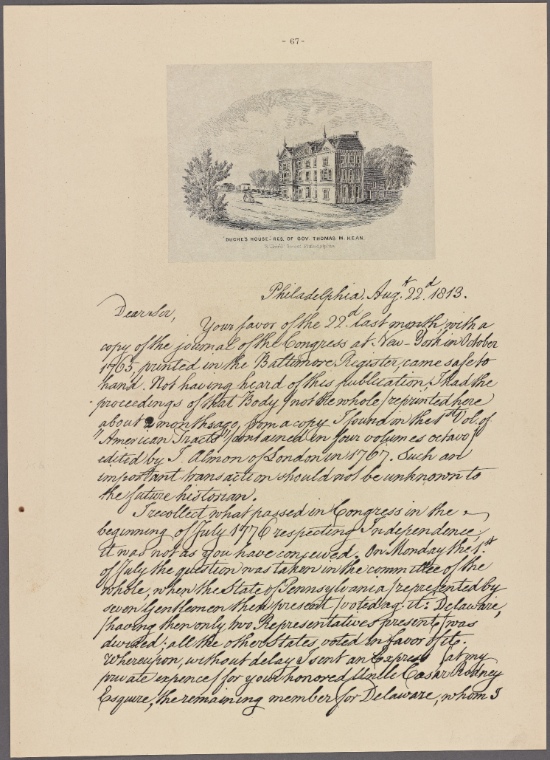 - 67 -
"DUCHE'S HOUSE - RES. OF GOV. THOMAS M. KEAN.
Philadelphia, Aug.t 22.d 1813.
Dear Sir,
Your favor of the 22.d last month, with a
copy of the journal of the Congress at New-York in October
1765, printed in the Baltimore Register, came safe to
hand. Not having heard of this publication, I had the
proceedings of that Body [not the whole] reprinted here
about 2 months ago, from a copy I found in the 1st Vol. of
"American Tracts" [contained in four volumes octavo]
edited by J. Almon of London in 1767. Such an
important transaction should not be unknown to
the future historian.
I recollect what passed in Congress in the
beginning of July 1776 respecting Independence;
it was not as you have conceived. On Monday the 1.st
of July the question was taken in the committee of the
whole, when the State of Pennsylvania [represented by
seven Gentlemen then present] voted ag.t it: Delaware,
[having then only two Representatives present] was
divided; all the other States voted in favor of it.
Whereupon, without delay I sent an Express [at my
private expence] for your honored Uncle Cæsar Rodney
Esquire, the remaining member for Delaware, whom I